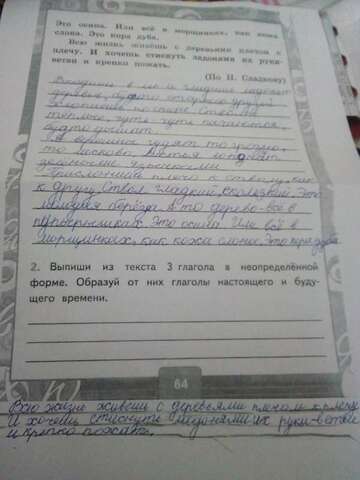 Это осина. Или всё в морщинках, как кожа
слона. Это кора дуба.
Всю жизнь живёшь с деревьями плечом к
плечу. И хочешь стиснуть ладонями их руки-
ветви и крепко пожать.
(По Н. Сладкову)
Входишь в лес и
деревья, старого друга
по спине. Стволы
теплые, чуть-чуть
будто дышат.
то
зелёными
Прислонишь плечо к стволу, как
к другу. Ствол гладкий, скользкий. Это
берёза. А то дерево-всё в
пупырышках. Это осина. Или всё в
морщинках, как кожа слона. Это кора дуба.
2. Выпиши из текста 3 глагола в неопределённой
форме. Образуй от них глаголы настоящего и буду-
щего времени.
64
Всю жизнь живешь с деревьями плечом к плечу
И хочешь стиснуть ладонями их руки-ветви
и крепко пожать.